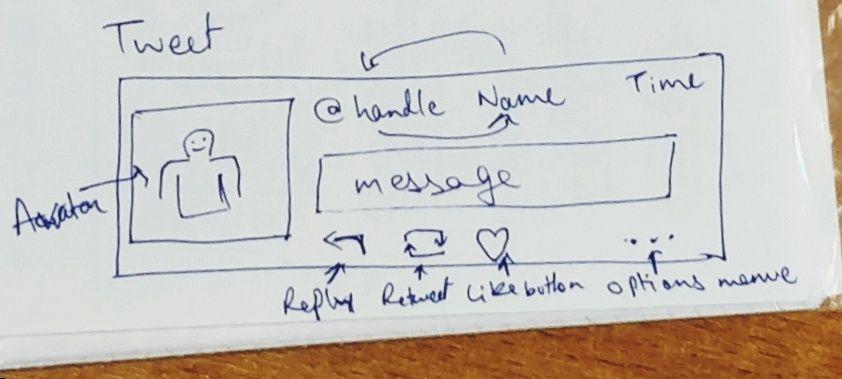 Tweet
@handle Name Time
message
Avatar
Reply Retweet Like button options menue